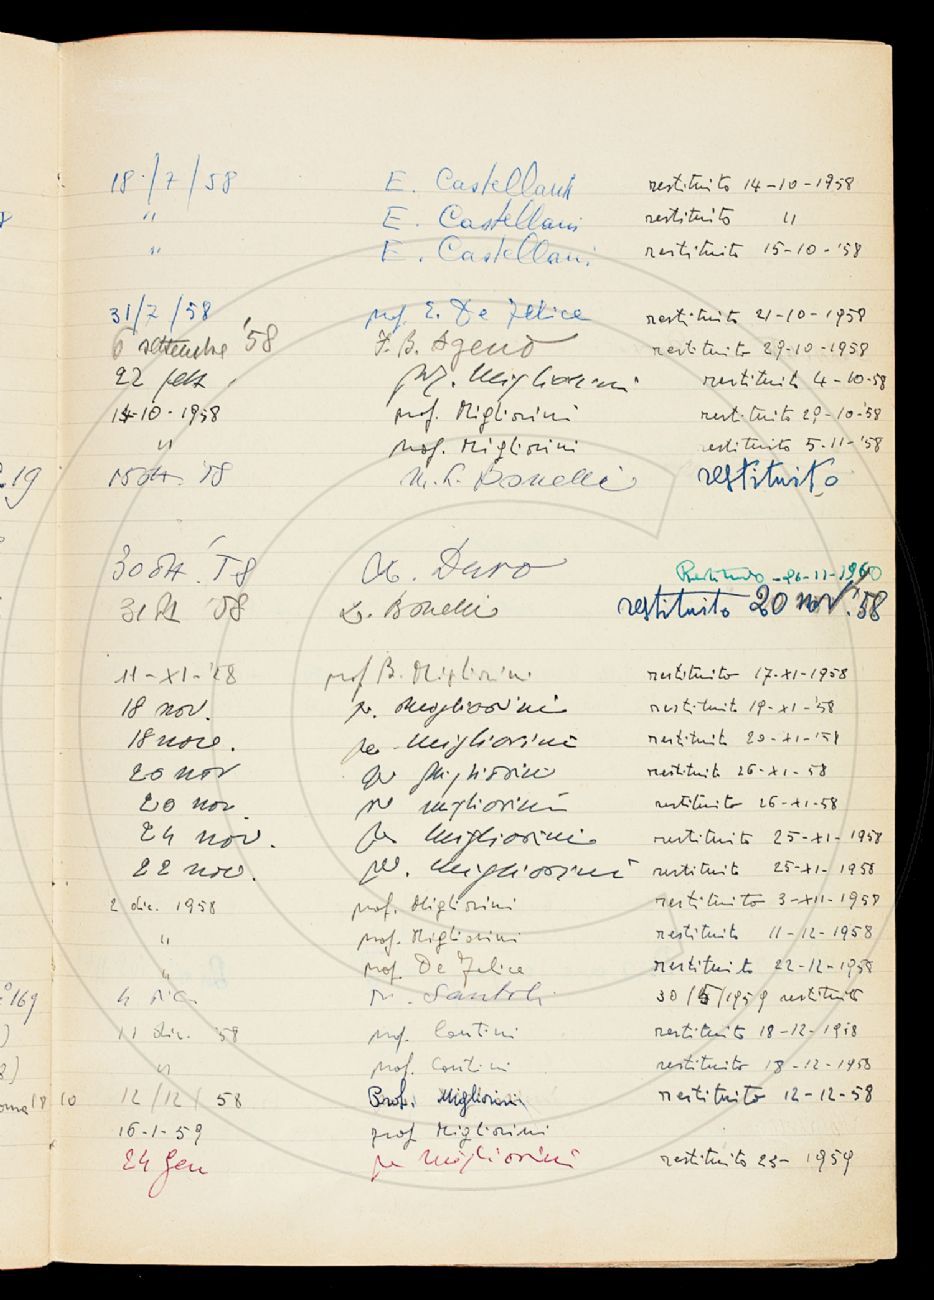 18/7/58 E. Castellani restituito 14-10-1958
" E. Castellani restituito "
" E. Castellani restituito 15-10-'58
31/7/58 prof. E. De Felice restituito 21-10-1958
6 settembre '58 F. B. Ageno restituito 29-10-1958
22 prof. Migliorini restituito 4-10-58
14-10-1958 prof. Migliorini restituito 29-10-'58
" prof. Migliorini restituito 5-11-'58
219 15 ott. '58 M. L. Bonelli restituito
30 ott. '58 Duro Restituito 26-11-1960
31 '58 Bonelli restituito 20 nov. '58
11-XI-'58 prof B. Migliorini restituito 17-XI-1958
18 nov. Migliorini restituito 19-XI-'58
18 nov. per Migliorini restituito 20-XI-'58
20 nov per Migliorini restituito 26-XI-58
20 nov per Migliorini restituito 26-XI-58
24 nov. per Migliorini restituito 25-XI-1958
22 nov. per Migliorini restituito 25-XI-1958
2 dic. 1958 prof. Migliorini restituito 3-XII-1958
" prof. Migliorini restituito 11-12-1958
" prof. De Felice restituito 22-12-1958
169 4 dic. Santoli 30/5/1959 restituito
11 dic. '58 prof. Contini restituito 18-12-1958
" prof. Contini restituito 18-12-1958
18 10 12/12/58 Prof. Migliorini restituito 12-12-58
16-1-59 prof Migliorini
24 gen per Migliorini restituito 23- 1959